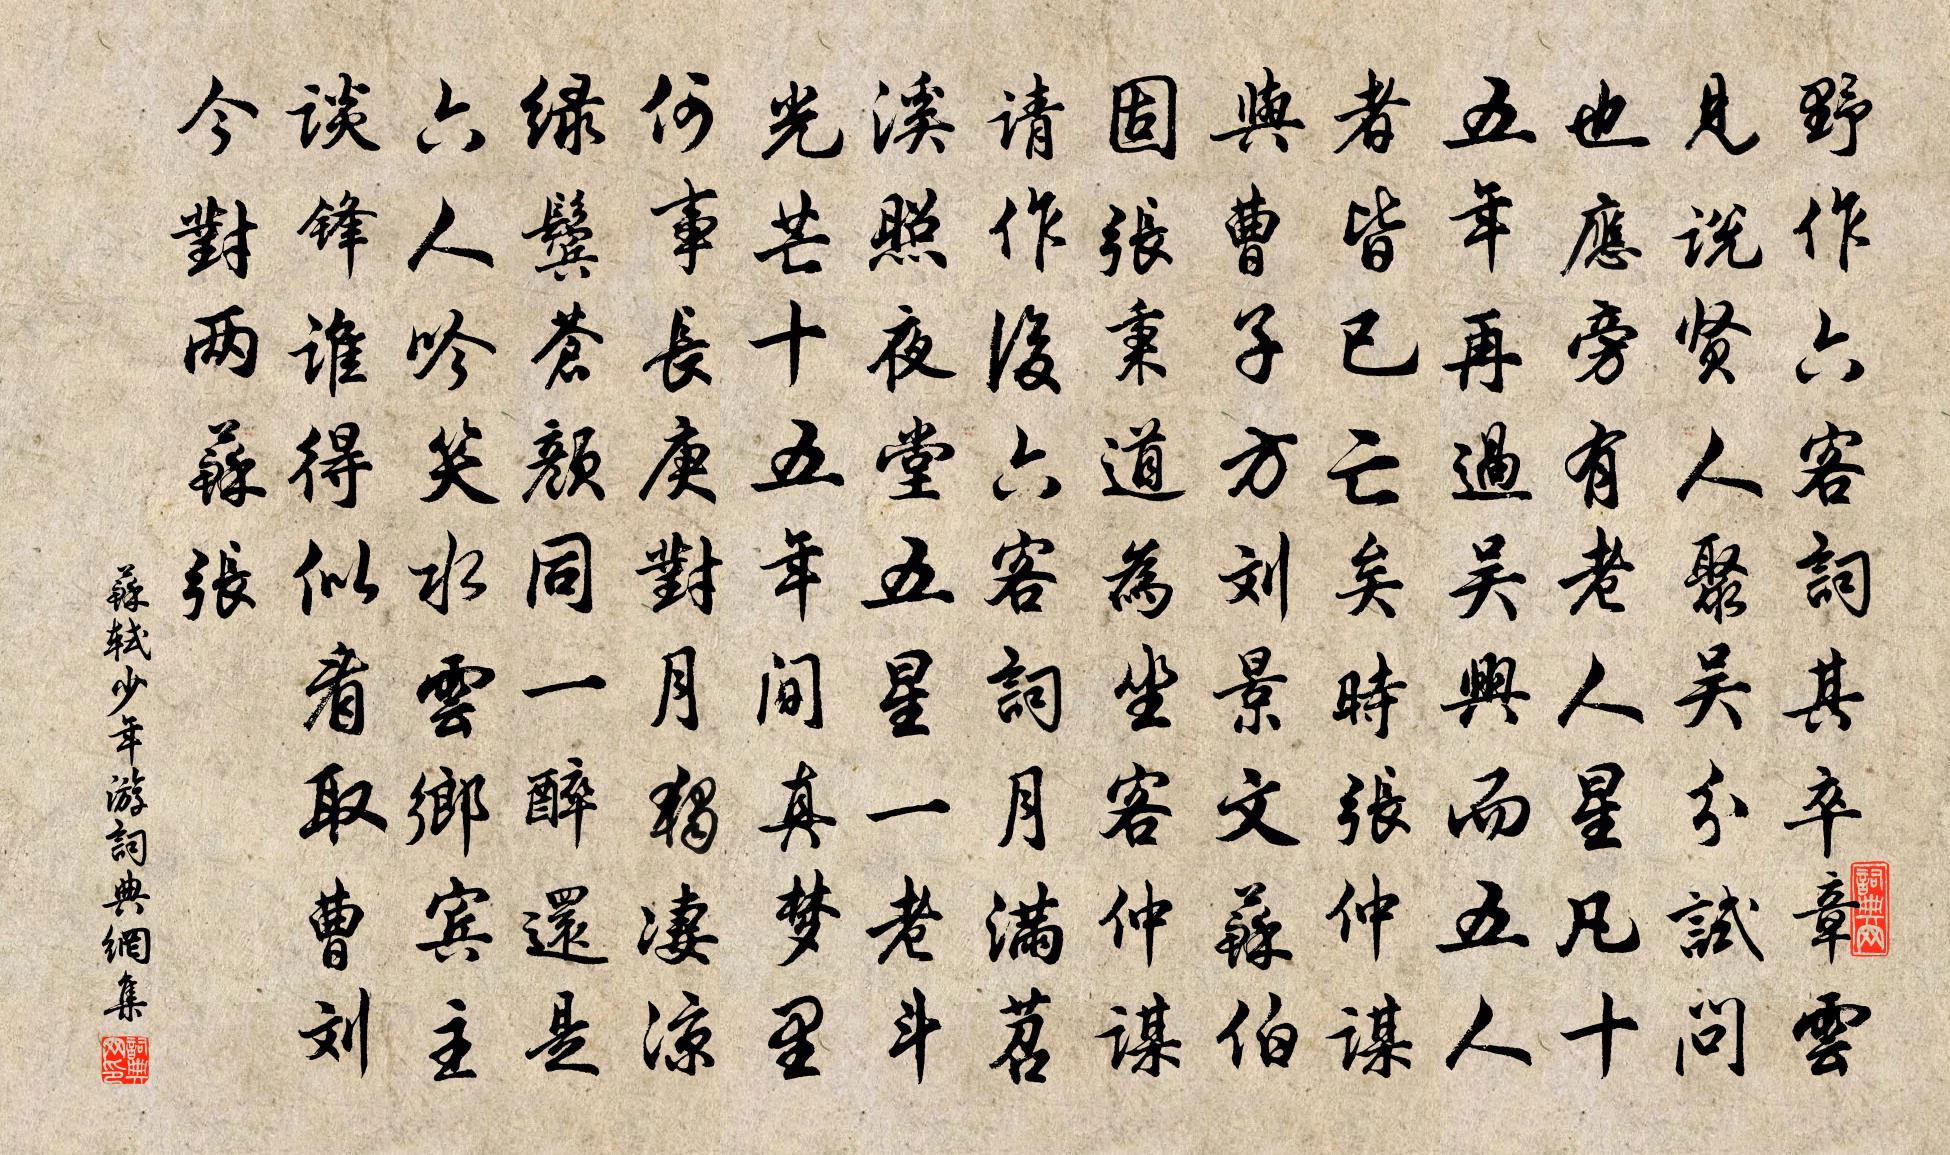 野作六客詞其卒章雲
見说贤人聚吴分試问
也應旁有老人星凡十
五年再過吴興而五人
者皆已亡矣時張仲谋
與曹子方刘景文蘇伯
固張秉道為坐客仲谋
请作後六客詞月满苕
溪照夜堂五星一老斗
光芒十五年间真梦里
何事長庚對月独凄凉
绿鬓蒼颜同一醉還是
六人吟笑水雲鄉宾主
谈锋谁得似看取曹刘
今對两蘇張
蘇轼少年游詞典網集
詞典网
詞典网印